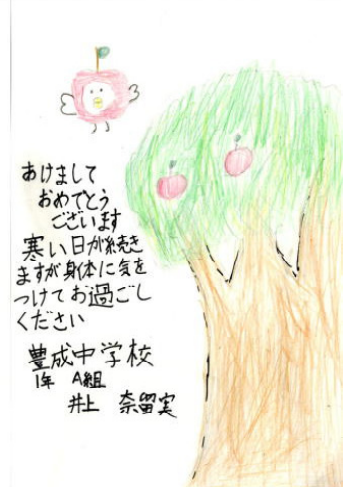 あけまして
おめでとう
ございます
寒い日が続き
ますが身体に気を
つけてお過ごし
ください
豊成中学校
1年 A組
井上 奈留実